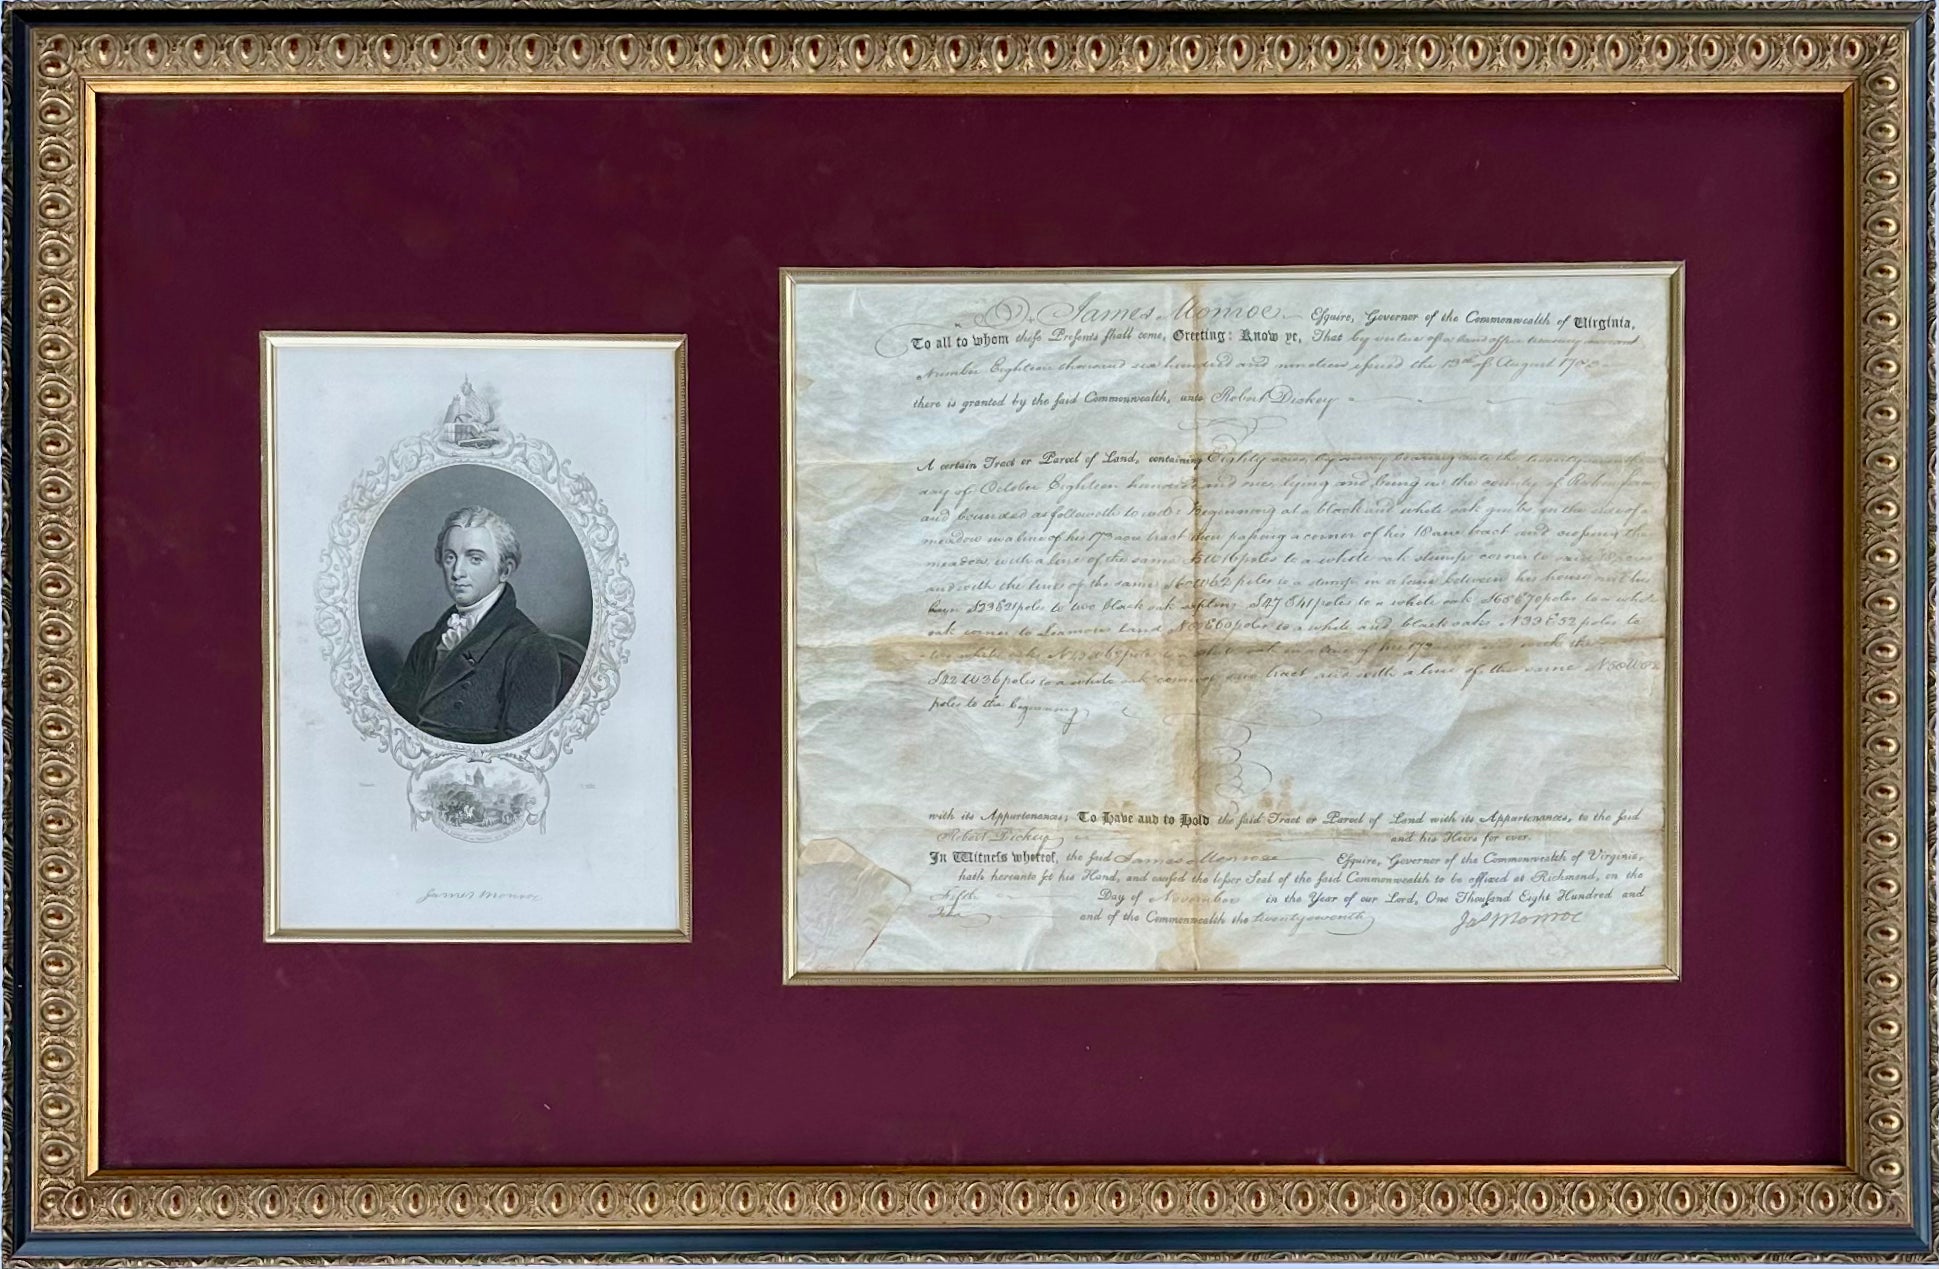 James Monroe
James Monroe Esquire, Governor of the Commonwealth of Virginia,
To all to whom these Presents shall come, Greeting: Know ye, That by virtue of a land office treasury warrant
Number Eighteen thousand six hundred and nineteen issued the 13th of August 17
there is granted by the said Commonwealth, unto Robert Dickey
A certain Tract or Parcel of Land, containing Eighty acres, by survey bearing date the twenty
day of October Eighteen hundred and one, lying and being in the county of
and bounded as followeth to wit: Beginning at a black and white oak in the side of a
meadow in a line of his 173 acre tract then passing a corner of his 18 acre tract and crossing the
meadow with a line of the same poles to a white oak stump corner to said 18 acres
and with the line of the same S60W62 poles to a stump in a lane between his house and his
barn S23E21 poles to two black oak saplins S47E41 poles to a white oak S65E70 poles to a white
oak corner to land poles to a white and black oaks N33E52 poles to
two white oaks poles to a white oak in a line of his 173 with the
S42W36 poles to a white oak corner of tract and with a line of the same
poles to the beginning
with its Appurtenances; To Have and to Hold the said Tract or Parcel of Land with its Appurtenances, to the said
Robert Dickey and his Heirs for ever.
In Witness whereof, the said James Monroe Esquire, Governor of the Commonwealth of Virginia,
hath hereunto set his Hand, and caused the lesser Seal of the said Commonwealth to be affixed at Richmond, on the
Fifth Day of November in the Year of our Lord, One Thousand Eight Hundred and
and of the Commonwealth the twentyseventh
Jas Monroe